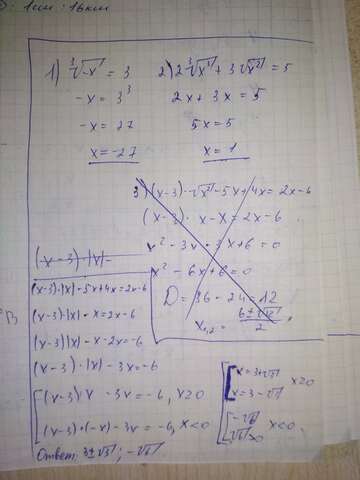 1см : 16км
1) ∛-x = 3
-x = 3³
-x = 27
x = -27
2) 2∛x³ + 3√x² = 5
2x + 3x = 5
5x = 5
x = 1
3) (x-3)·√x² - 5x + 4x = 2x-6
(x-3)·x-x = 2x-6
x² - 3x - 3x + 6 = 0
x² - 6x + 6 = 0
D = 36 - 24 = 12
x₁,₂ = 6±√12 / 2
(x-3)·|x|-
(x-3)·|x| - 5x+4x = 2x-6
(x-3)·|x| - x = 2x-6
(x-3)|x| - x - 2x = -6
(x-3)·|x| - 3x = -6
(x-3)·x - 3x = -6, x≥0
(x-3)·(-x) - 3x = -6, x<0
x = 3+√3
x = 3-√3
x≥0
-√6
√6
x<0
Ответ: 3±√3; -√6